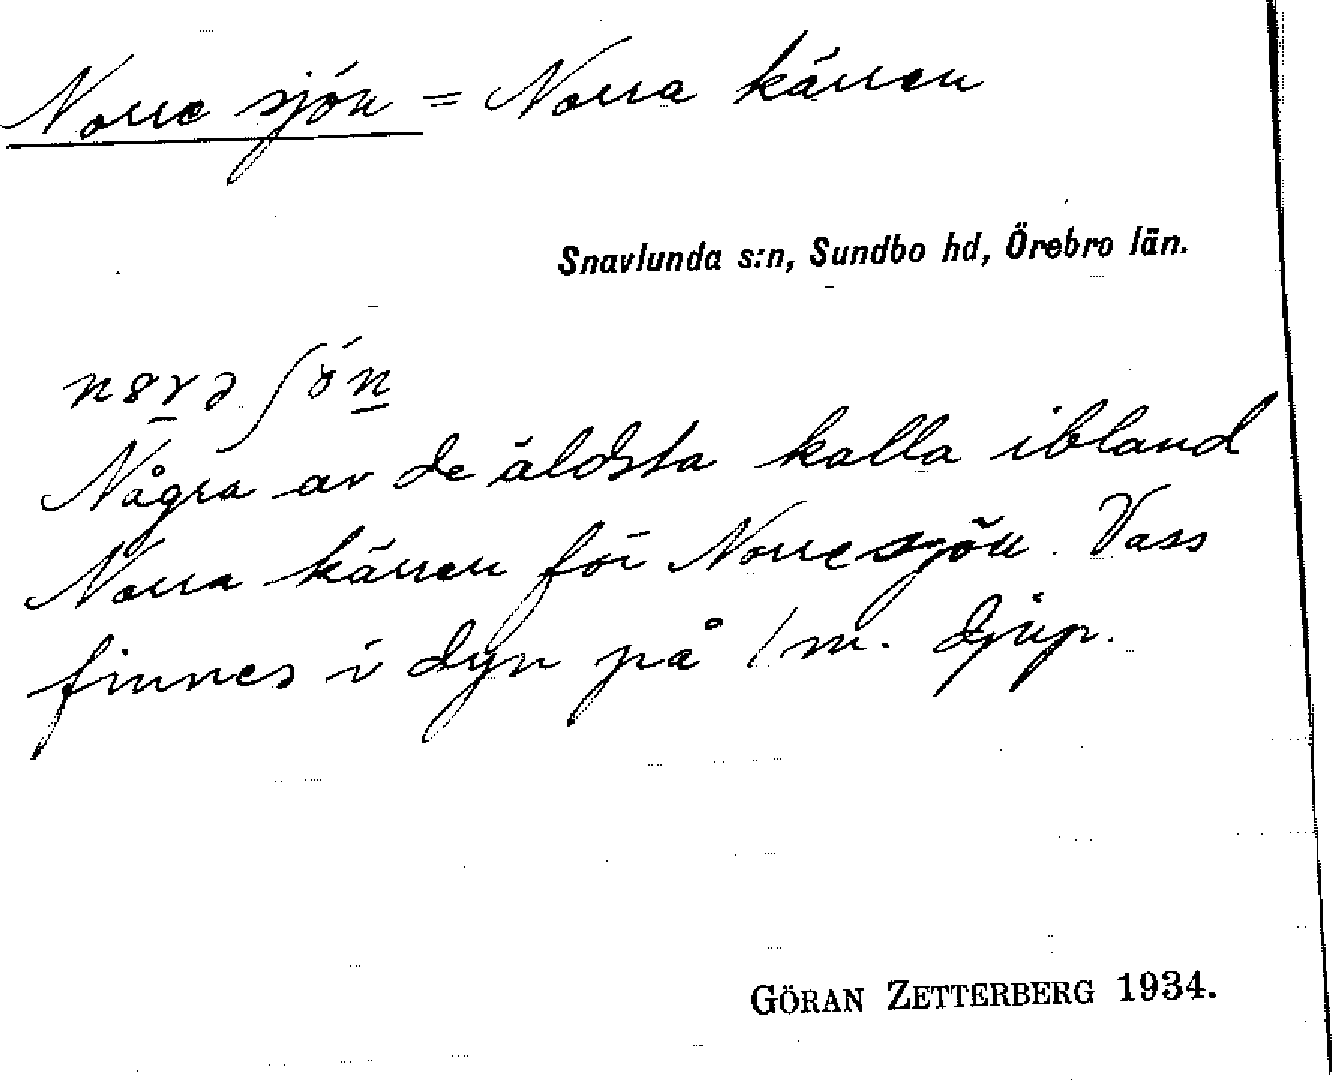 Norre sjön = Norra kärren
Snavlunda s:n, Sundbo hd, Örebro län.
Några av de äldsta kalla ibland
Norra kärren för Norresjön. Vass
finnes i dyn på 1 m. djup.
GÖRAN ZETTERBERG 1934.